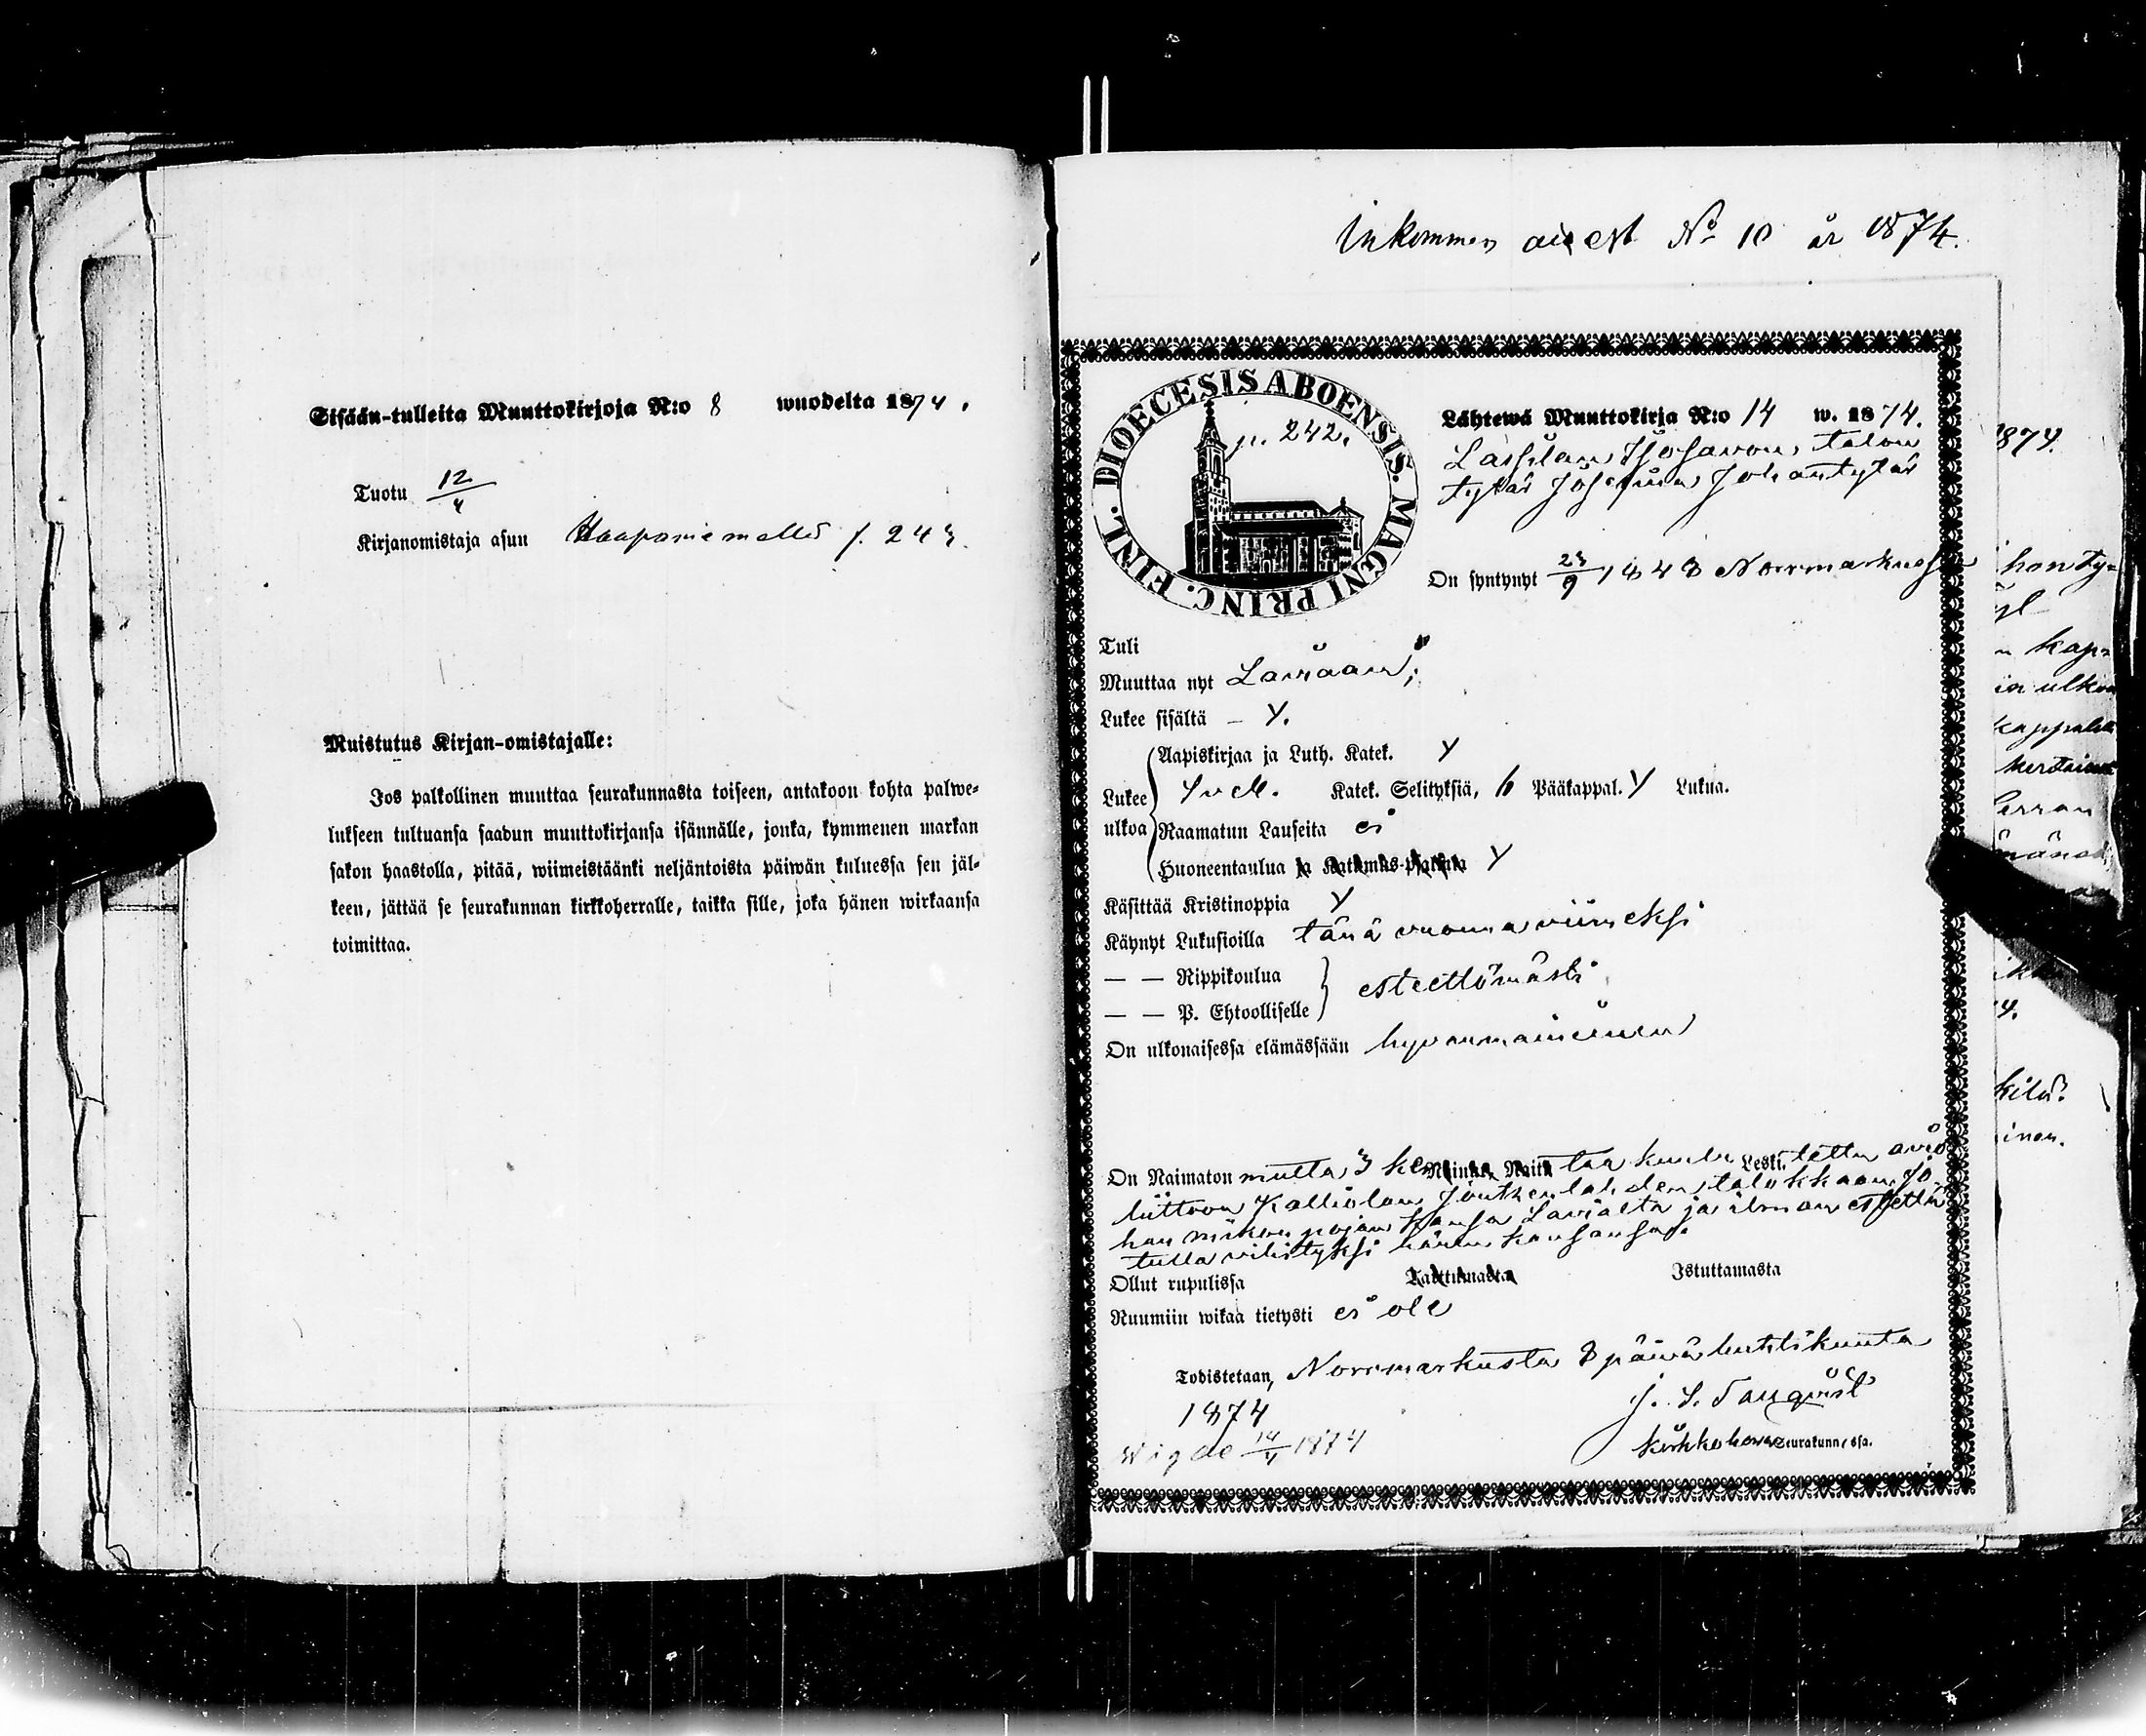 Sisään-tulleita Muuttokirjoja N:o 8 wuodelta 1874.
Tuotu 12/4
Kirjanomistaja asuu Haapaniemellä p. 243.
Muistutus Kirjan-omistajalle:
Jos palkollinen muuttaa seurakunnasta toiseen, antakoon kohta palwe-
lukseen tultuansa saadun muuttokirjansa isännälle, jonka, kymmenen markan
sakon haastolla, pitää, wiimeistäänki neljäntoista päiwän kuluessa sen jäl-
keen, jättää se seurakunnan kirkkoherralle, taikka sille, joka hänen wirkaansa
toimittaa.
Inkommen att est No 10 år 1874.
DIOECESIS ABOENSIS. MAGNI PRINC. FINL.
p. 242.
Lähtewä Muuttokirja N:o 14 w. 1874.
talon
tytär Josefina Johantytär
On syntynyt 23/9 1848 Norrmarkussa
Tuli
Muuttaa nyt Laviaan;
Lukee sisältä – Y.
Lukee ulkoa
Aapiskirjaa ja Luth. Katek. Y
Y v M. Katek. Selityksiä, 6 Pääkappal. Y Lukua.
Raamatun Lauseita ei
Huoneentaulua ja Katumus-psalmia Y
Käsittää Kristinoppia Y
Käynyt Lukusioilla tänä vuonna viimeksi
— — Rippikoulua
— — P. Ehtoolliselle
esteettömästi
On ulkonaisessa elämässään hyvänmaineinen
On Naimaton mutta 3 ker Leski. tettu avio
liittoon Kalliolan Jouhenlahden talokkaan Jo-
han pojan kansa Laviálta ja ilman estettä
tulla vihityksi hänen kansansa.
Ollut rupulissa Tarttumasta Istuttamasta
Ruumiin wikaa tietysti ei ole
Todistetaan, Norrmarkusta 8 päivä huhtikuuta
1874
J. S. Tanqvist
Kirkkoherra Seurakunnassa.
Wigde 14/4 1874
1874.
kap-
ia ulkoa
kappaletta
Herran